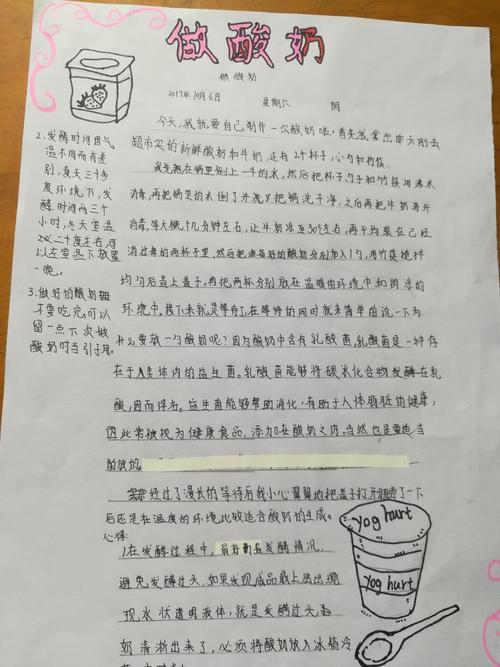 做酸奶
做酸奶
2017年10月6日 星期六 阴
今天,我就要自己制作一次酸奶啦。首先我拿出昨天刚去
超市买的新鲜酸奶和牛奶,还有2个杯子,小勺和竹筷。
我先把在锅里倒上一半的水,然后把杯子勺子和竹筷用沸水
消毒,再把锅里的水倒了并洗了把锅洗干净,之后再把牛奶煮开
消毒,等大概十几分钟左右,让牛奶凉至30℃左右,再平均装在已经
消过毒的两杯子里,然后把准备好的酸奶分别加入1勺,用竹筷搅拌
均匀后盖上盖子,再把两杯分别放在温暖的环境中和阴凉的
环境中,接下来就是等待了,在等待的同时就来简单的说一下为
什么要放一勺酸奶呢?因为酸奶中含有乳酸菌,乳酸菌是一种存
在于人类体内的益生菌。乳酸菌能够将碳水化合物发酵在乳
酸,因而得名。益生菌能够帮助消化,有助于人体肠脏的健康,
因此常被视为健康食品,添加在酸奶之内,当然也是要适当
的放的。
经过了漫长的等待后我小心翼翼地把盖子打开了一下
后还是在温度的环境比较适合酸奶的生成。
心得:
1.在发酵过程中,最好看发酵情况,
避免发酵过天,如果发现成品最上层出现
现水状透明液体,就是发酵过天,酸
奶清淅出来了,必须将酸奶放入冰箱冷
2.发酵时间因气
温不同而有差
别,夏天三十多
度环境下,发
酵时间两三个
小时,冬天室温
二十度左右,可
以在室温下放置
一晚。
3.做好的酸奶
要吃完,可以
留一点下次做
酸奶时当引子用。
yoghurt
yoghurt